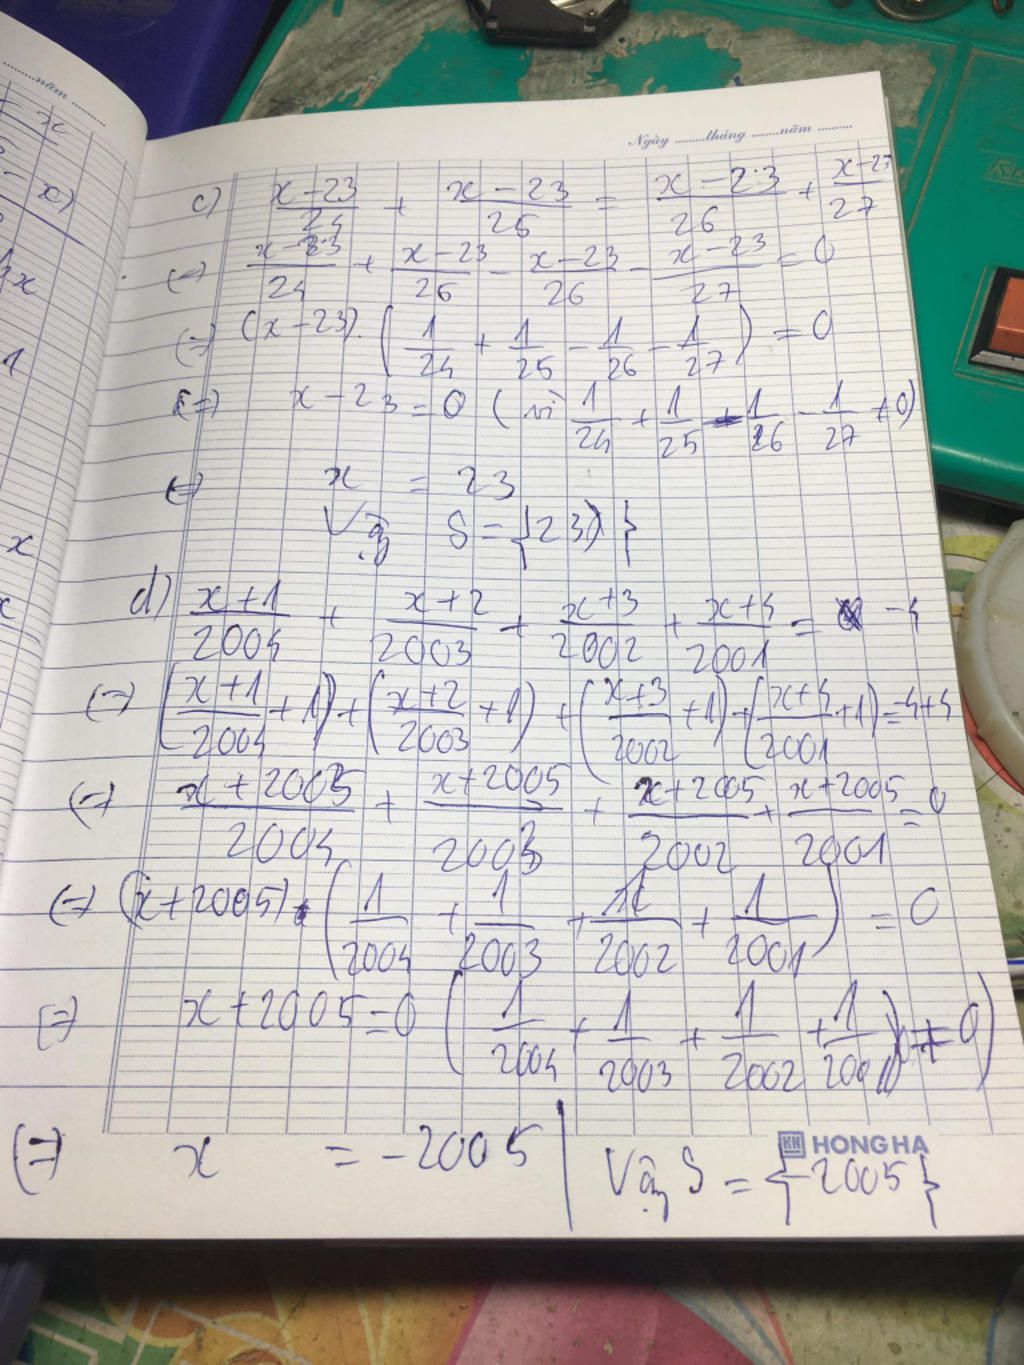 năm
Ngày ........tháng ........năm ..........
c) \frac{x-23}{24} + \frac{x-23}{25} = \frac{x-23}{26} + \frac{x-23}{27}
(=) \frac{x-23}{24} + \frac{x-23}{26} - \frac{x-23}{26} - \frac{x-23}{27} = 0
(=) (x-23).(\frac{1}{24} + \frac{1}{25} - \frac{1}{26} - \frac{1}{27}) = 0
(=) x-23 = 0 (vì \frac{1}{24} + \frac{1}{25} - \frac{1}{26} - \frac{1}{27} ≠ 0)
(=) x = 23
Vậy S = {23)}
d) \frac{x+1}{2004} + \frac{x+2}{2003} + \frac{x+3}{2002} + \frac{x+4}{2001} = -4
(=) (\frac{x+1}{2004} + 1) + (\frac{x+2}{2003} + 1) + (\frac{x+3}{2002} + 1) + (\frac{x+4}{2001} + 1) = -4+4
(=) \frac{x+2005}{2004} + \frac{x+2005}{2003} + \frac{x+2005}{2002} + \frac{x+2005}{2001} = 0
(=) (x+2005).(\frac{1}{2004} + \frac{1}{2003} + \frac{1}{2002} + \frac{1}{2001}) = 0
(=) x+2005 = 0 (\frac{1}{2004} + \frac{1}{2003} + \frac{1}{2002} + \frac{1}{2001}) ≠ 0)
HONG HA
(=) x = -2005 | Vậy S = {-2005}